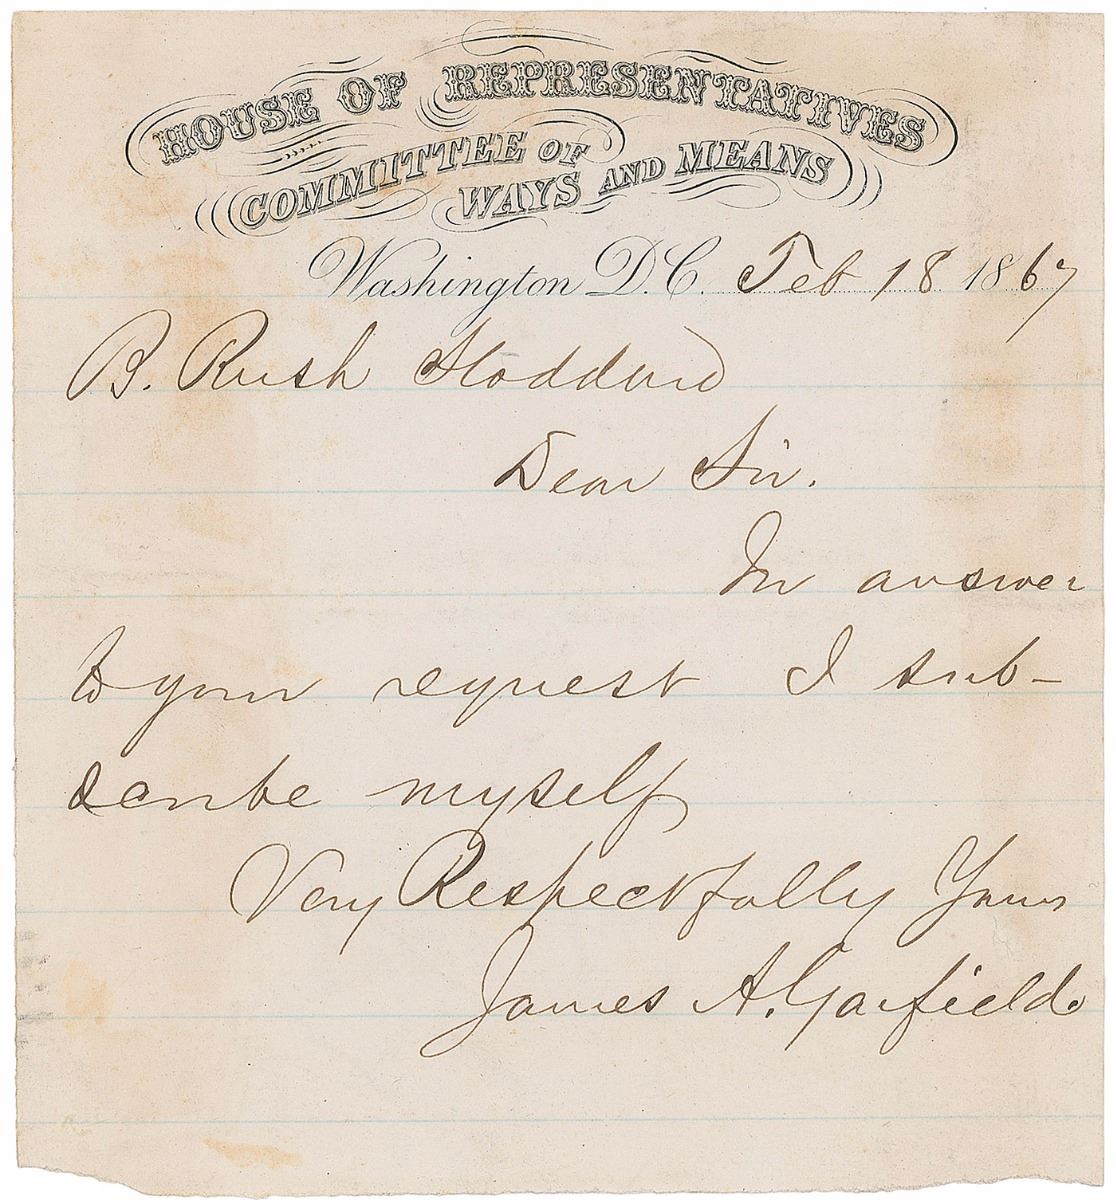 HOUSE OF REPRESENTATIVES
COMMITTEE OF WAYS AND MEANS
Washington D.C. Feb 18 1867
B. Rush Stoddard
Dear Sir.
In answer
to your request I sub-
scribe myself
Very Respectfully Yours
James A. Garfield.